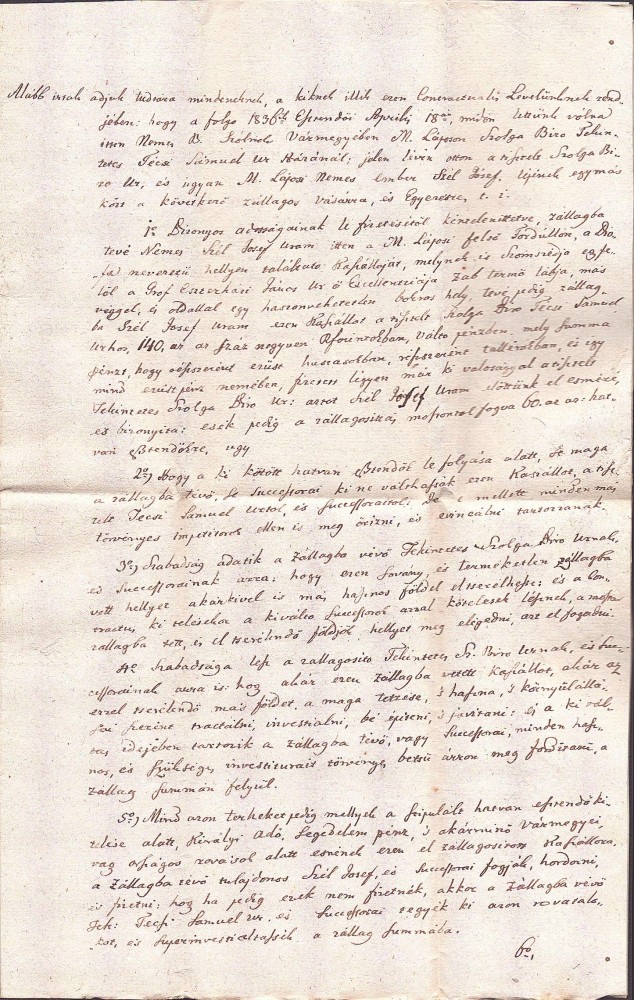 Alább irtak adjuk tudtára mindeneknek, a kiknek illik ezen Contractualis Levelünknek rend-
jében: hogy a folyo 1836ik Esztendöi Aprilis 18án, midön lettünk volna
itten Nemes B. Szólnok Vármegyében M. Láposon Szolga Biro Tekin-
tetes Técsi Sámuel Ur Házánál; jelen lévén otton a tisztelt Szolga Bi-
ro Ur, és ugyan M. Láposi Nemes Ember Szél Josef, lépének egymás
közt a következö zállagos vásárra, és Egyezésre, t. i.
1o Bizonyos adosságainak le fizetésétöl kénszeríttetve, zállagba
tevé Nemes Szél Josef Uram itten a M. Láposi felsö Fordúllón, a
nevezetü hellyen találtato Kaszálloját, melynek is Szomszédja egyfe-
löl a Grof Eszterházi János Ur ö Excellentiája Zab termö lábja, más
véggel, és oldallal egy haszonvehetetlen bokros hely, tevé pedig zállag-
ba Szél Josef Uram ezen Kaszállot a tisztelt Szolga Biro Tecsi Samuel
Urhoz, 140, az az Száz negyven Rforintokban, Válto pénzben, mely Summa
pénzt, hogy részszerént ezüst huszasokban, részszerént tallérokban, és egy
mind ezüst pénz nemében, fizetett légyen már ki valosággal a tisztelt
Tekintetes Szolga Biro Ur: aztot Szél Josef Uram elöttünk el esméré,
és bizonyita: esék pedig a zállagositás mostontol fogva 60. az az: hat-
van Esztendökre, ugy
2o) Hogy a ki kötött hatvan Esztendök le folyása alatt, sem maga
a zállagba tévö, se Successorai ki ne válthassák ezen Kaszállot, a tisz-
telt Tecsi Samuel Urtol, és Successoraitol; De e mellett minden más
törvényes impetitorok ellen is meg örizni, és evincálni tartozzanak.
3o) Szabadság adatik a Zállagba vévö Tekintetes Szolga Biro Urnak,
és Successorainak arra: hogy ezen sovány, és termékletlen zállagba
vett hellyet akárkivel is más hasznos földel el tserélhesse: és a Con-
tractus ki telésekor a kiválto Successorok azzal kötelesek lésznek, a
zállagba tett, és el tserélendö földjök hellyet meg elégedni, azt el fogadni.
4o Szabadsága lesz a zállagosito Tekintetes Sz. Biro Urnak, és Suc-
cessorainak arra is: hogy akár ezen zállagba vétett Kaszállot, akár az
ezzel tserélendö más földet, a maga tetzése, s haszna, s környülállá-
sai szerint tractálni, investiálni, bé épiteni, s javitani: és a ki vál-
tás idejében tartozik a zállagba tévö, vagy Successorai, minden hasz-
nos, és szükséges investiturait törvényes betsü árron meg forditani, a
zállag summán felyül.
5o) Mind azon terheket pedig mellyek a stipulált hatvan esztendö ki-
telése alatt, Királyi Adó, Segedelem pénz, s akárminö Vármegyei
vag országos rovatsol alatt esnének ezen el zállagositott Kaszállora,
a Zállagba tévö tulajdonos Szél Josef, és Successorai fogják, hordozni,
és fizetni: hog ha pedig ezek nem fizetnék, akkor a zállagba vévö
Tek: Tecsi Samuel Ur, és Successorai tegyék ki azon rovatalo-
kot, és superinvestiáltassék a zállag summába.
6o,